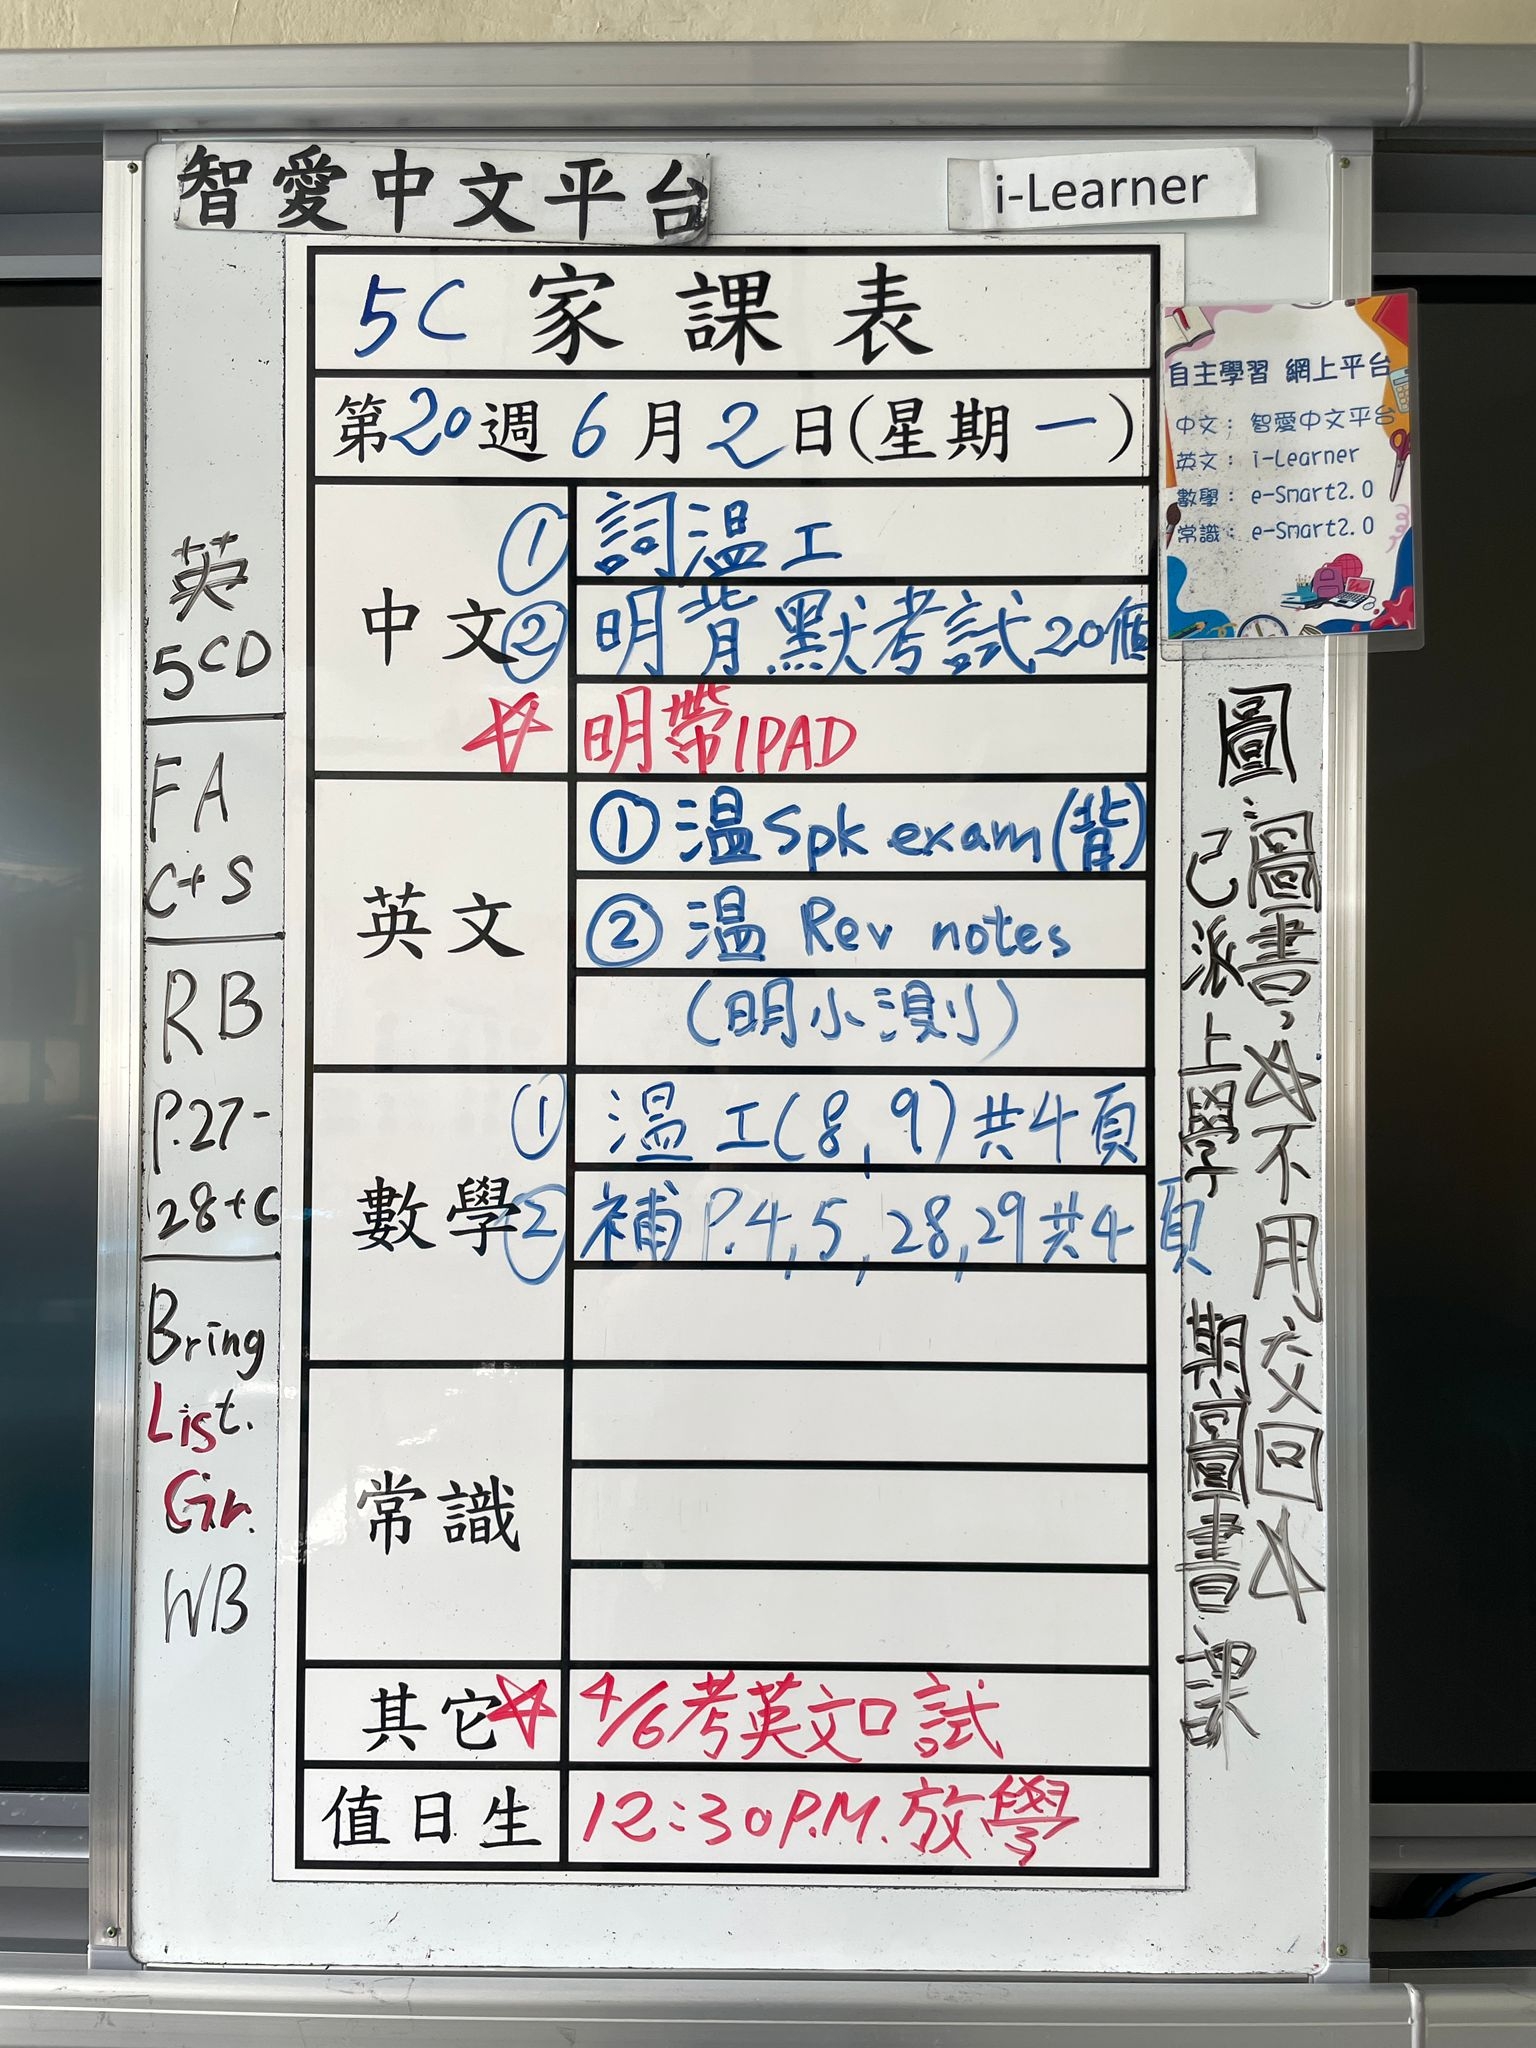 智愛中文平台
i-Learner
5C 家課表
第20週 6月2日(星期一)
中文
① 詞温工
② 明背默考試20個
☆ 明帶IPAD
英文
① 温 Spk exam (背)
② 温 Rev notes
(明小測)
數學
① 温工(8, 9) 共4頁
② 補 P.4, 5, 28, 29 共4頁
常識
其它
☆ 4/6考英文口試
值日生
12:30P.M. 放學
英
5CD
FA
C+S
RB
P.27-
28+C
Bring
List.
Gr.
WB
自主學習 網上平台
中文： 智愛中文平台
英文： i-Learner
數學： e-Smart2.0
常識： e-Smart2.0
圖：
圖書，☆不用交回☆
已派上學期圖書課